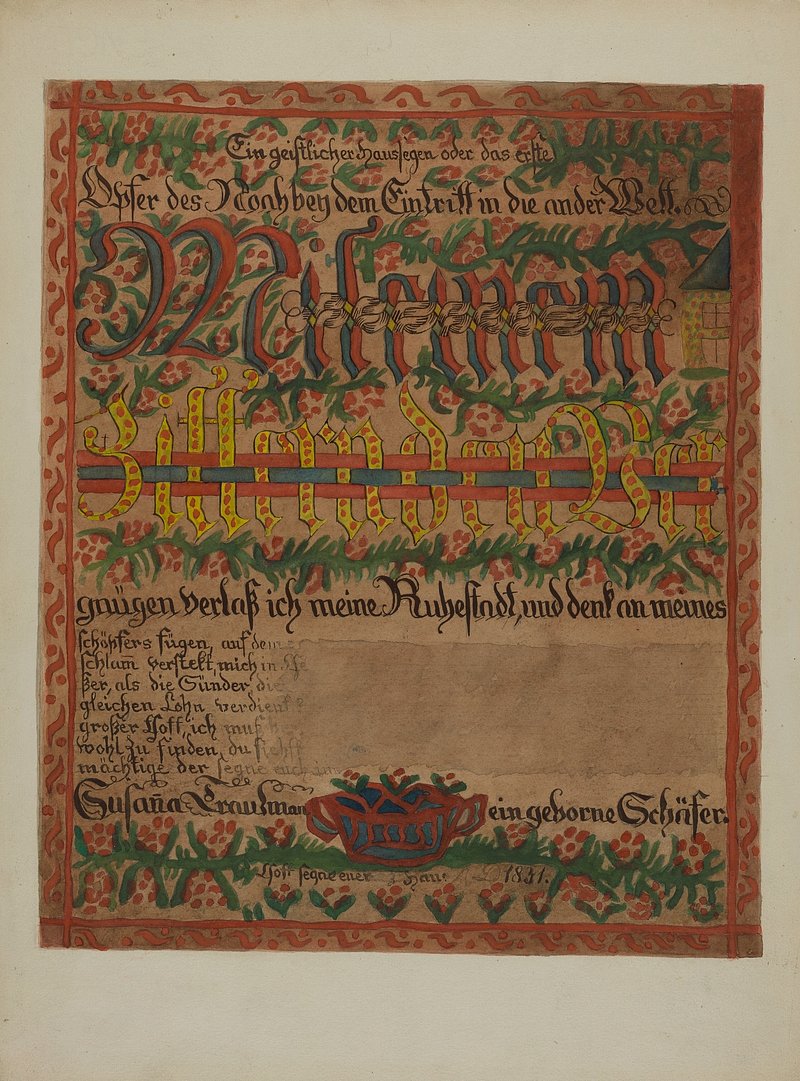 Ein geistlicher Haussegen oder das erste
Opfer des Noah bey dem Eintritt in die ander Welt.
Mit einem
Zittrenden Ver
gnügen verlaß ich meine Ruhestadt, und denk an meines
schöpfers fügen, auf dem
schlam̄ verstekt, mich in
ßer, als die Sünder, die
gleichen Lohn verdient
großer Gott, ich muß
wohl zu finden, du siehst
mächtige der segne euch im
Susan̄a Trautman ein geborne Schäfer.
Gott segne euer Haus 1831.